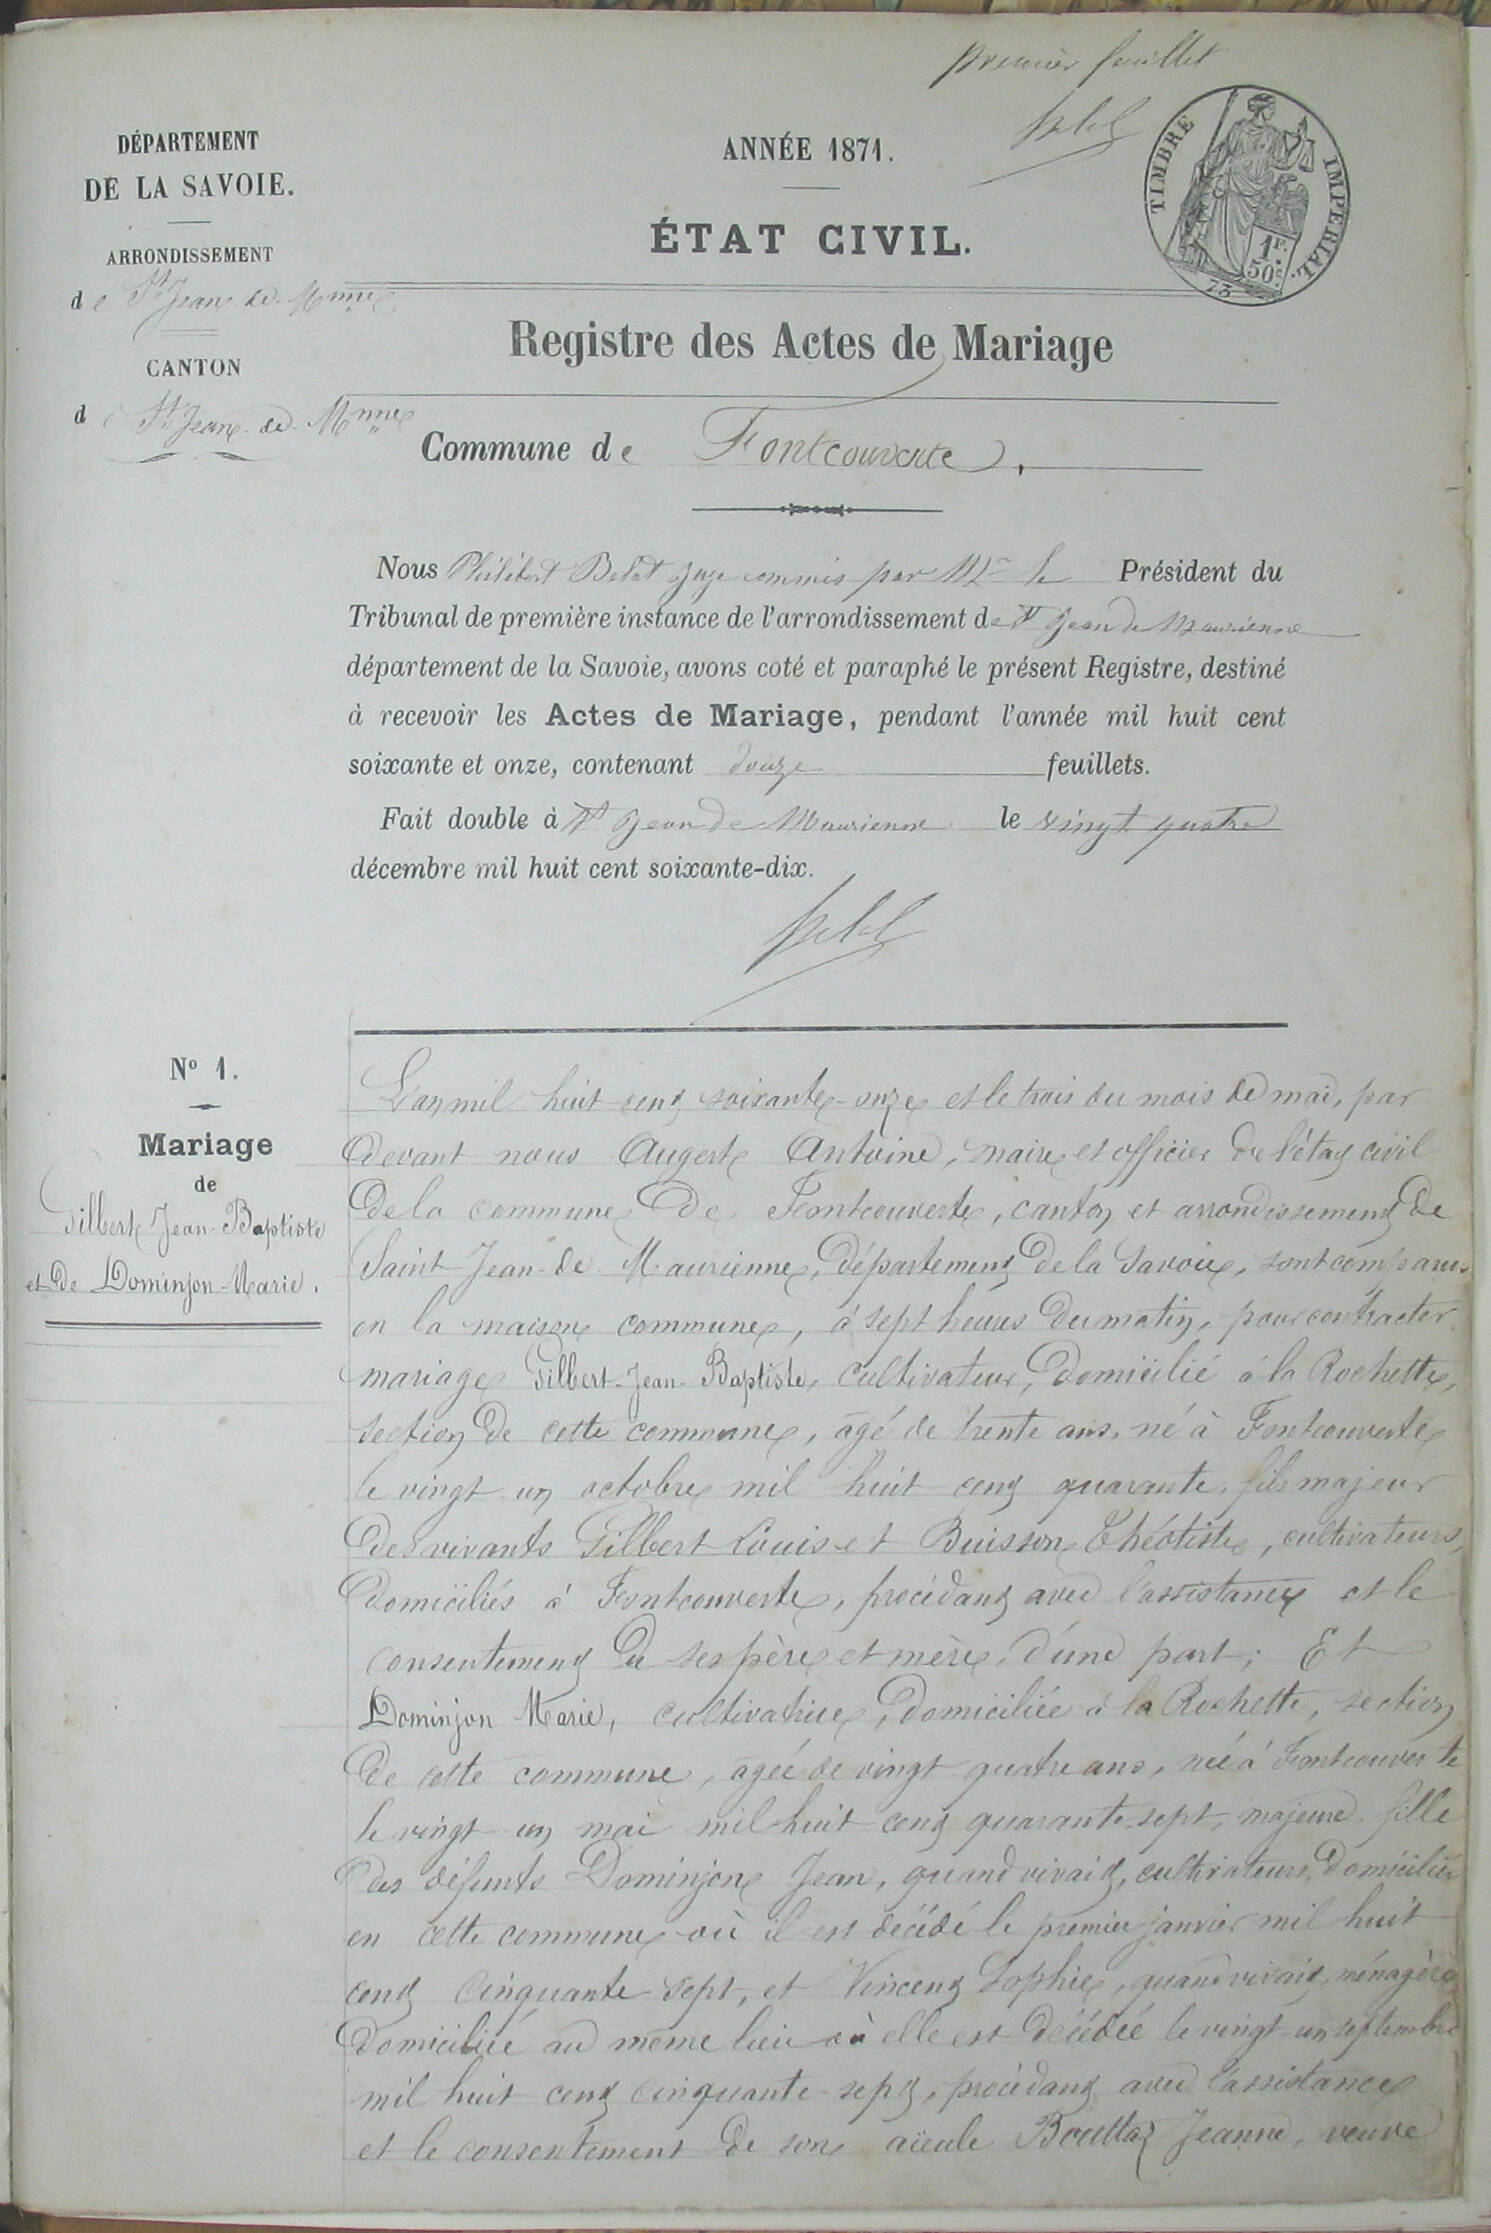 premier feuillet
DÉPARTEMENT
DE LA SAVOIE.
ARRONDISSEMENT
de St Jean de Mnne
CANTON
de St Jean de Mnne
ANNÉE 1871.
TIMBRE IMPERIAL.
1F.
50c.
73
ÉTAT CIVIL.
Registre des Actes de Mariage
Commune de Fontcouverte,
Nous Philibert juge commis par Mr le Président du
Tribunal de première instance de l'arrondissement de St Jean de Maurienne
département de la Savoie, avons coté et paraphé le présent Registre, destiné
à recevoir les Actes de Mariage, pendant l'année mil huit cent
soixante et onze, contenant douze feuillets.
Fait double à St Jean de Maurienne le vingt quatre
décembre mil huit cent soixante-dix.
No 1.
Mariage
de
Gilbert Jean-Baptiste
et de Dominjon Marie.
L'an mil huit cent soixante-onze et le trois du mois de mai, par
devant nous Augert Antoine, maire et officier de l'état civil
de la commune de Fontcouverte, canton et arrondissement de
Saint Jean de Maurienne, département de la Savoie, sont comparus
en la maison commune, à sept heures du matin, pour contracter
mariage Gilbert Jean-Baptiste, cultivateur, domicilié à la Rochette,
section de cette commune, âgé de trente ans, né à Fontcouverte
le vingt un octobre mil huit cent quarante, fils majeur
des vivants Gilbert Louis et Buisson Théotiste, cultivateurs,
domiciliés à Fontcouverte, procédant avec l'assistance et le
consentement de ses père et mère, d'une part; Et
Dominjon Marie, cultivatrice, domiciliée à la Rochette, section
de cette commune, agée de vingt quatre ans, née à Fontcouverte
le vingt un mai mil huit cent quarante-sept, majeure fille
des défunts Dominjon Jean, quand vivait, cultivateur, domicilié
en cette commune où il est décédé le premier janvier mil huit
cent cinquante sept, et Vincent Sophie, quand vivait, ménagère
domiciliée au même lieu où elle est décédée le vingt-un septembre
mil huit cent cinquante-sept, procédant avec l'assistance
et le consentement de son aïeule Bouttaz Jeanne, veuve